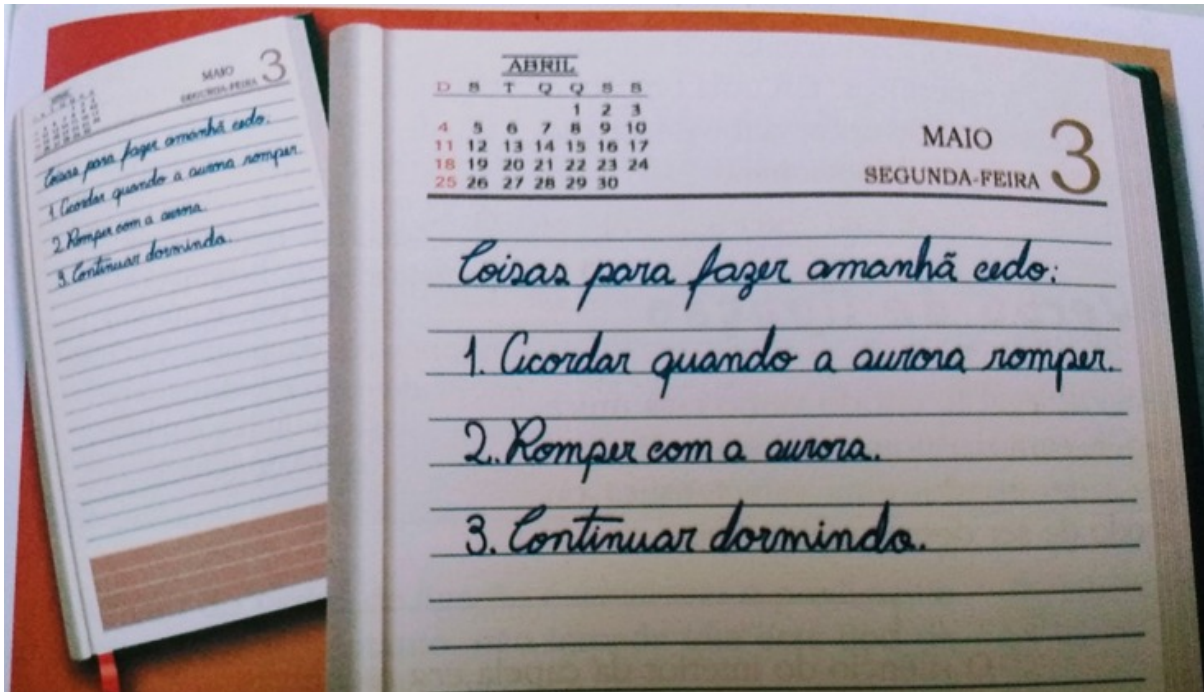 MAIO 3
SEGUNDA-FEIRA
Coisas para fazer amanhã cedo:
1. Acordar quando a aurora romper.
2. Romper com a aurora.
3. Continuar dormindo.
ABRIL
D S T Q Q S S
1 2 3
4 5 6 7 8 9 10
11 12 13 14 15 16 17
18 19 20 21 22 23 24
25 26 27 28 29 30
MAIO 3
SEGUNDA-FEIRA
Coisas para fazer amanhã cedo:
1. Acordar quando a aurora romper.
2. Romper com a aurora.
3. Continuar dormindo.